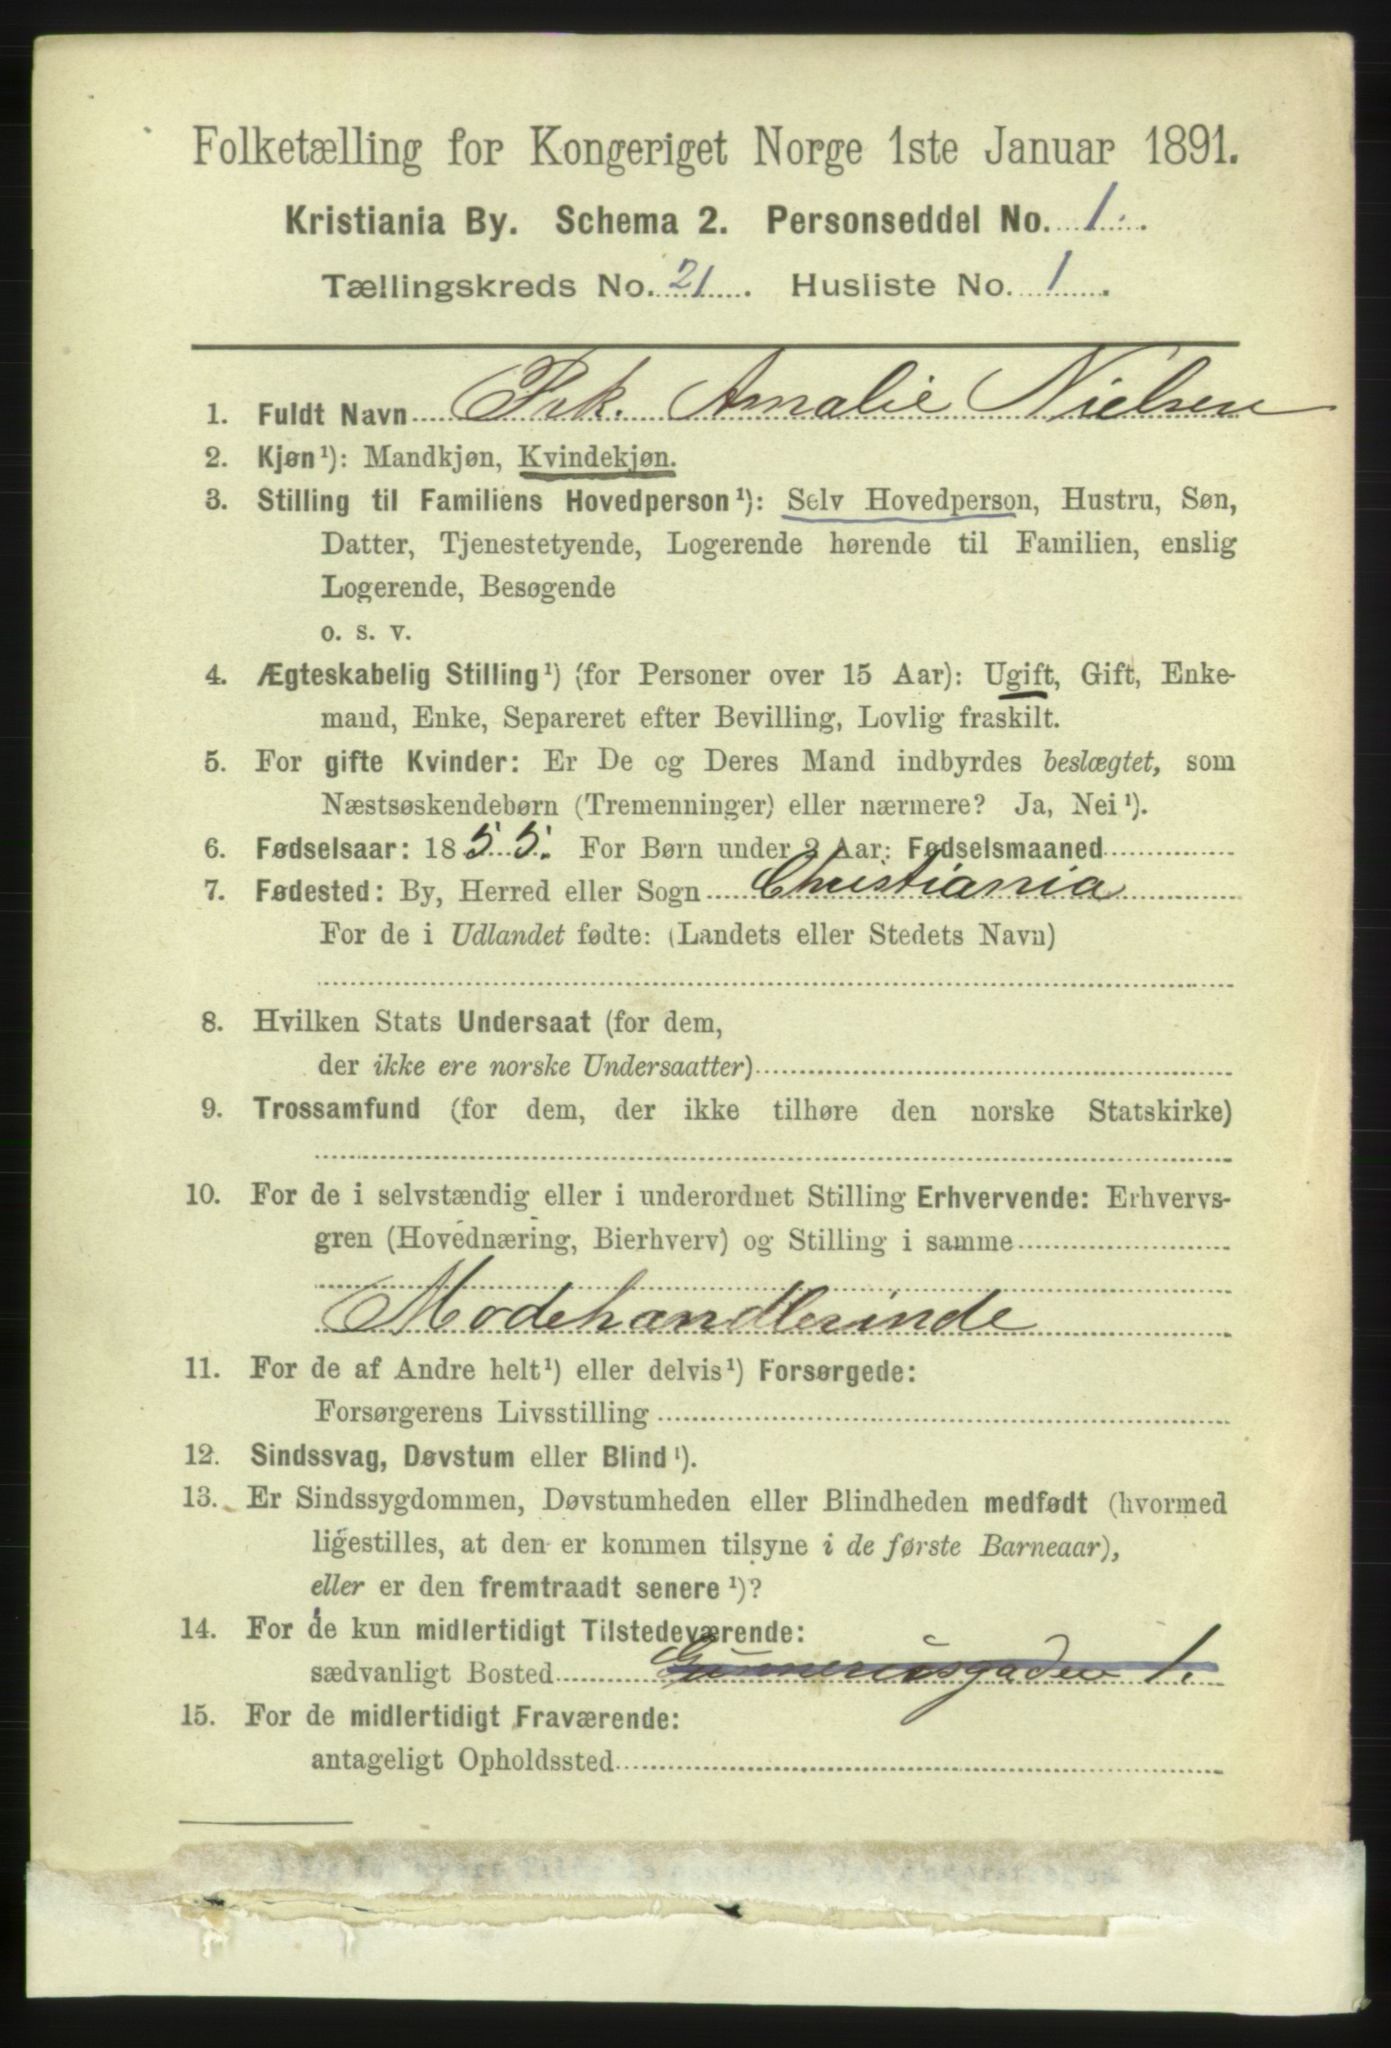 Folketælling for Kongeriget Norge 1ste Januar 1891.
Kristiania By. Schema 2. Personseddel No. 1.
Tællingskreds No. 21. Husliste No. 1.
1. Fuldt Navn Frk. Amalie Nielsen
2. Kjøn¹): Mandkjøn, Kvindekjøn.
3. Stilling til Familiens Hovedperson¹): Selv Hovedperson, Hustru, Søn,
Datter, Tjenestetyende, Logerende hørende til Familien, enslig
Logerende, Besøgende
o. s. v.
4. Ægteskabelig Stilling¹) (for Personer over 15 Aar): Ugift, Gift, Enke-
mand, Enke, Separeret efter Bevilling, Lovlig fraskilt.
5. For gifte Kvinder: Er De og Deres Mand indbyrdes beslægtet, som
Næstsøskendebørn (Tremenninger) eller nærmere? Ja, Nei¹).
6. Fødselsaar: 1855. For Børn under 2 Aar: Fødselsmaaned
7. Fødested: By, Herred eller Sogn Christiania
For de i Udlandet fødte: (Landets eller Stedets Navn)
8. Hvilken Stats Undersaat (for dem,
der ikke ere norske Undersaatter)
9. Trossamfund (for dem, der ikke tilhøre den norske Statskirke)
10. For de i selvstændig eller i underordnet Stilling Erhvervende: Erhvervs-
gren (Hovednæring, Bierhverv) og Stilling i samme
Modehandlerinde
11. For de af Andre helt¹) eller delvis¹) Forsørgede:
Forsørgerens Livsstilling
12. Sindssvag, Døvstum eller Blind¹).
13. Er Sindssygdommen, Døvstumheden eller Blindheden medfødt (hvormed
ligestilles, at den er kommen tilsyne i de første Barneaar),
eller er den fremtraadt senere¹)?
14. For de kun midlertidigt Tilstedeværende:
sædvanligt Bosted Gunnerusgaden 1.
15. For de midlertidigt Fraværende:
antageligt Opholdssted